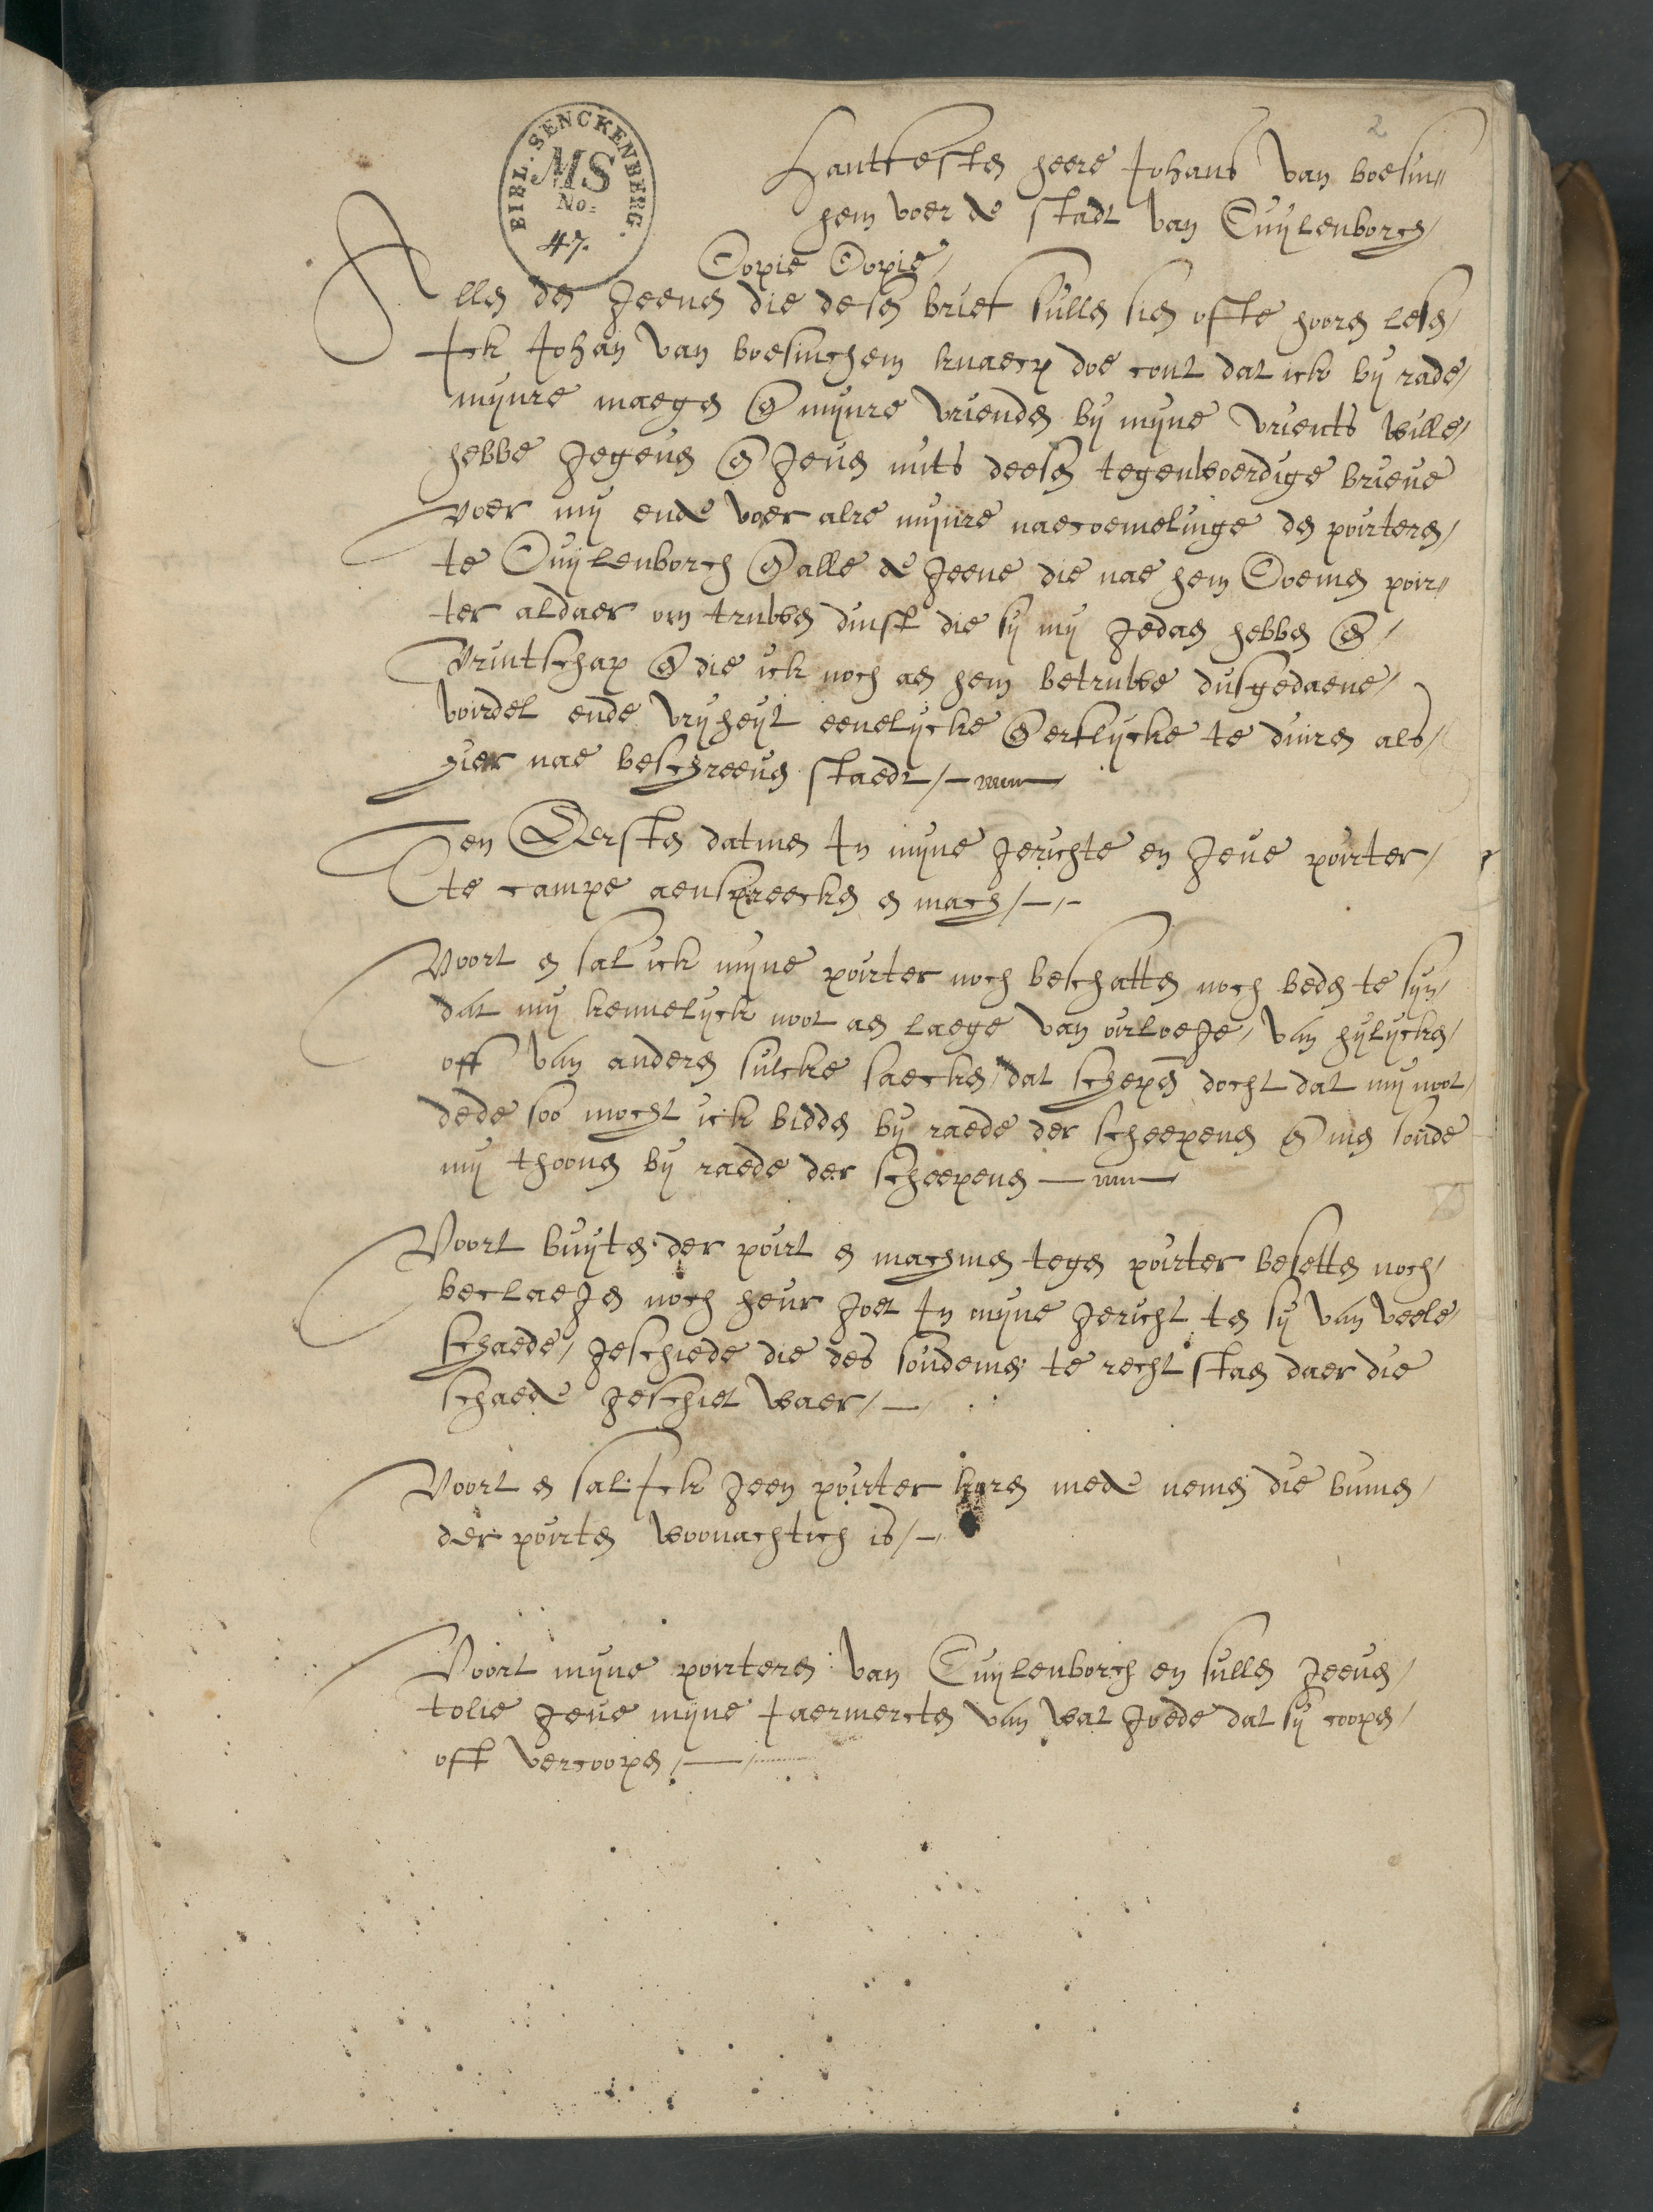 2
BIBL. SENCKENBERG.
MS
No:
47.
Hantfesten heere Johans van boesin„
hem voer de stadt van Cuÿlenborch/
Copie Copie/
Allen den geenen die desen brief sullen sien ofte hooren lesen/
Ick Johan van boesinchem knaep doe cont dat ick bÿ rade/
mÿnre maegen en mÿnre vrienden bÿ mÿne vrients wille/
hebbe gegeven en geven mits deesen tegenwoerdige brieve
voer mÿ ende voer alre mÿnre naecoemelinge den poirteren/
te Cuÿlenborch en alle de geene die nae hem Coemen poir„
ter aldaer om truwen dinst die sÿ mÿ gedaen hebben en/
vruntschap en die ick noch aen hem betruwe dusgedaene/
voirdel ende vrÿheÿt eenelÿcke en erflÿcke te duiren als/
hier nae beschreeven staedt/—
Ten Eersten datmen In mÿne gerichte en geve poirter/
te campe aenspreecken en mach/—
Voort en sal ick mÿne poirter noch beschatten noch beden te sÿn/
dat mÿ kennelÿck noot aen laege van oirloege/ van hÿlÿcken/
off van anderen sulcke saecken/ dat schepen docht dat mÿ noot/
dede soo mocht ick bidden bÿ raede der scheepenen en men soude
mÿ thoonen bÿ raede der scheepenen —
Voort buÿten der poirt en machmen tegen poirter besetten noch/
beclaegen noch heur goet In mÿne gericht ten sÿ van veele/
schaede/ geschiede die des soudemen te recht staen daer die
schaede geschiet waer/—
Voort en sal Ick geen poirter koren mede nemen die bumen/
der poirten woonachtich is/—
Voort mÿne poirteren van Cuÿlenborch en sullen geenen/
tolle geve mÿne Jaermercten van wat goede dat sÿ coopen/
oft vercoopen/—